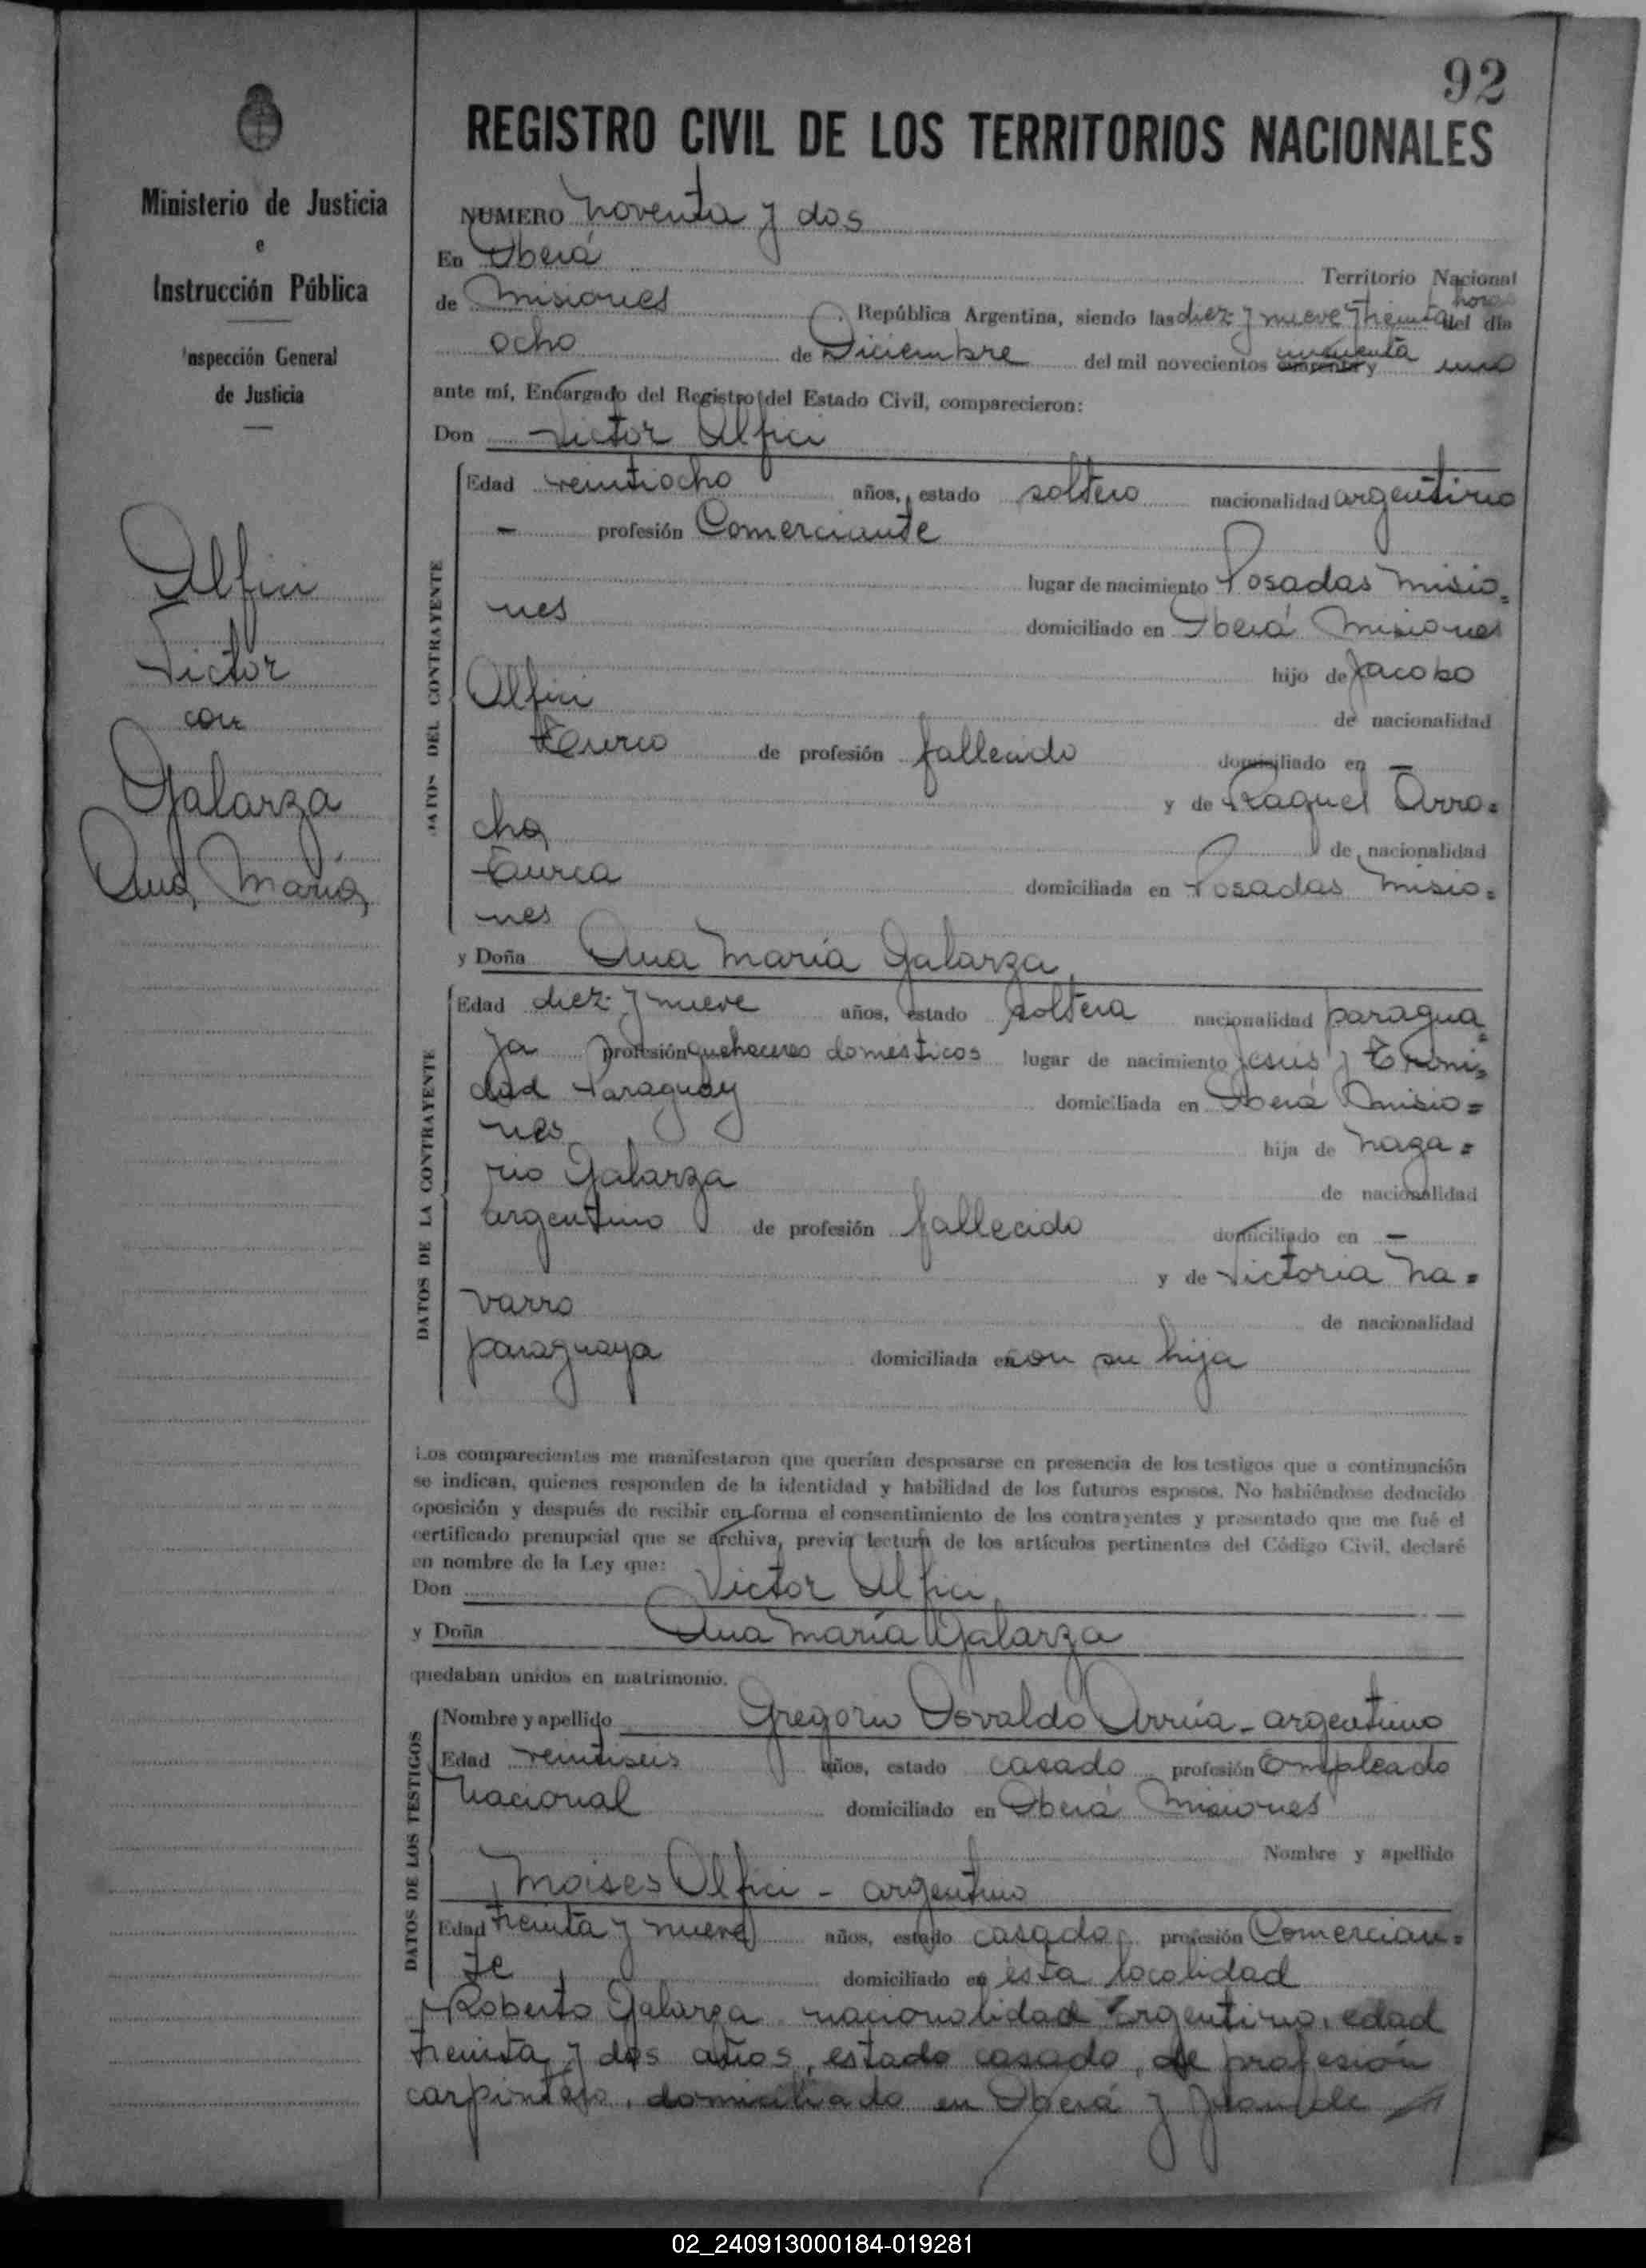 92
REGISTRO CIVIL DE LOS TERRITORIOS NACIONALES
Ministerio de Justicia
e
Instrucción Pública
Inspección General
de Justicia
Alfici
Victor
con
Galarza
Ana María
NUMERO noventa y dos
En Oberá Territorio Nacional
de Misiones República Argentina, siendo las diez y nueve y treinta horas del día
ocho de Diciembre del mil novecientos cuarenta y cincuenta uno
ante mí, Encargado del Registro del Estado Civil, comparecieron:
Don Victor Alfici
DATOS DEL CONTRAYENTE
Edad veintiocho años, estado soltero nacionalidad argentino
- profesión Comerciante
lugar de nacimiento Posadas Misio=
nes domiciliado en Oberá Misiones
hijo de Jacobo
Alfici de nacionalidad
Turco de profesión fallecido domiciliado en -
y de Raquel Arro=
cha de nacionalidad
Turca domiciliada en Posadas Misio=
nes
y Doña Ana María Galarza
DATOS DE LA CONTRAYENTE
Edad diez y nueve años, estado soltera nacionalidad paragua=
ya profesión quehaceres domésticos lugar de nacimiento Jesús y Trini=
dad Paraguay domiciliada en Oberá Misio=
nes hija de Naza=
rio Galarza de nacionalidad
argentino de profesión fallecido domiciliado en -
y de Victoria Na=
varro de nacionalidad
paraguaya domiciliada en con su hija
Los comparecientes me manifestaron que querían desposarse en presencia de los testigos que a continuación
se indican, quienes responden de la identidad y habilidad de los futuros esposos. No habiéndose deducido
oposición y después de recibir en forma el consentimiento de los contrayentes y presentado que me fué el
certificado prenupcial que se archiva, previa lectura de los artículos pertinentes del Código Civil, declaré
en nombre de la Ley que:
Don Victor Alfici
y Doña Ana María Galarza
quedaban unidos en matrimonio.
DATOS DE LOS TESTIGOS
Nombre y apellido Gregorio Osvaldo Arrúa - argentino
Edad veintiseis años, estado casado profesión Empleado
Nacional domiciliado en Oberá Misiones
Nombre y apellido
Moises Alfici - argentino
Edad treinta y nueve años, estado casado profesión Comercian=
te domiciliado en esta localidad
Roberto Galarza nacionalidad argentino, edad
treinta y dos años, estado casado, de profesión
carpintero, domiciliado en Oberá y Juan de
02_240913000184-019281